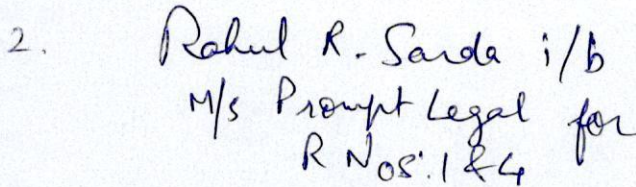 2. Rahul R. Sarda i/b
M/s Prompt Legal for
R Nos. 1 & 4